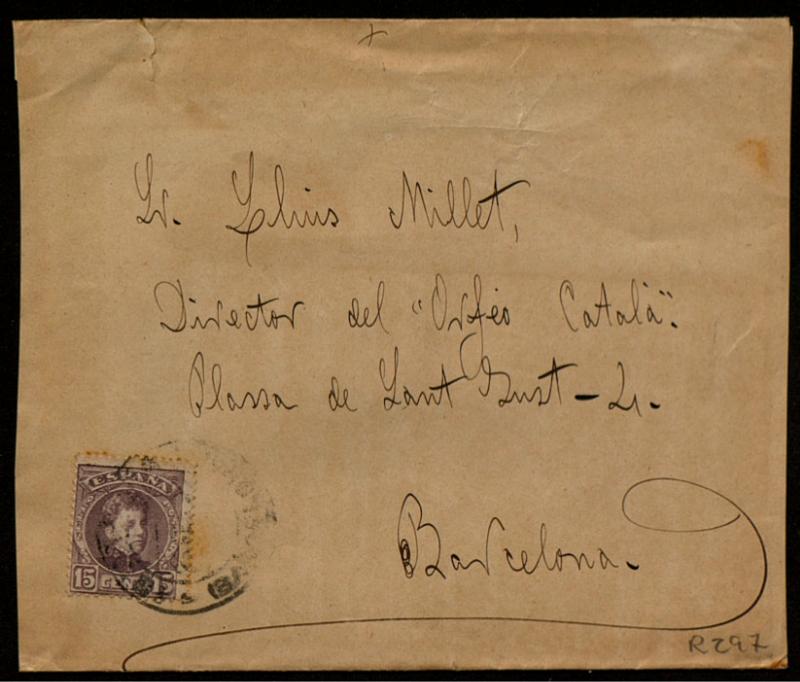 Sr. Lluis Millet,
Director del "Orfeó Català".
Plassa de Sant Just - 4.
Barcelona.
ESPAÑA
15 CENT 15
R297